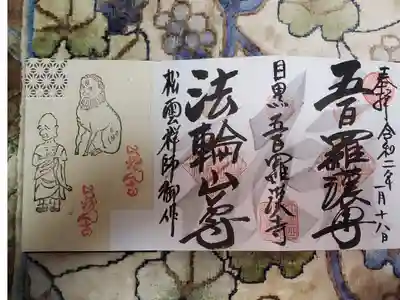 奉拝 令和二年一月十八日
五百羅漢尊
目黒五百羅漢寺
法輪山
松雲禅師御作